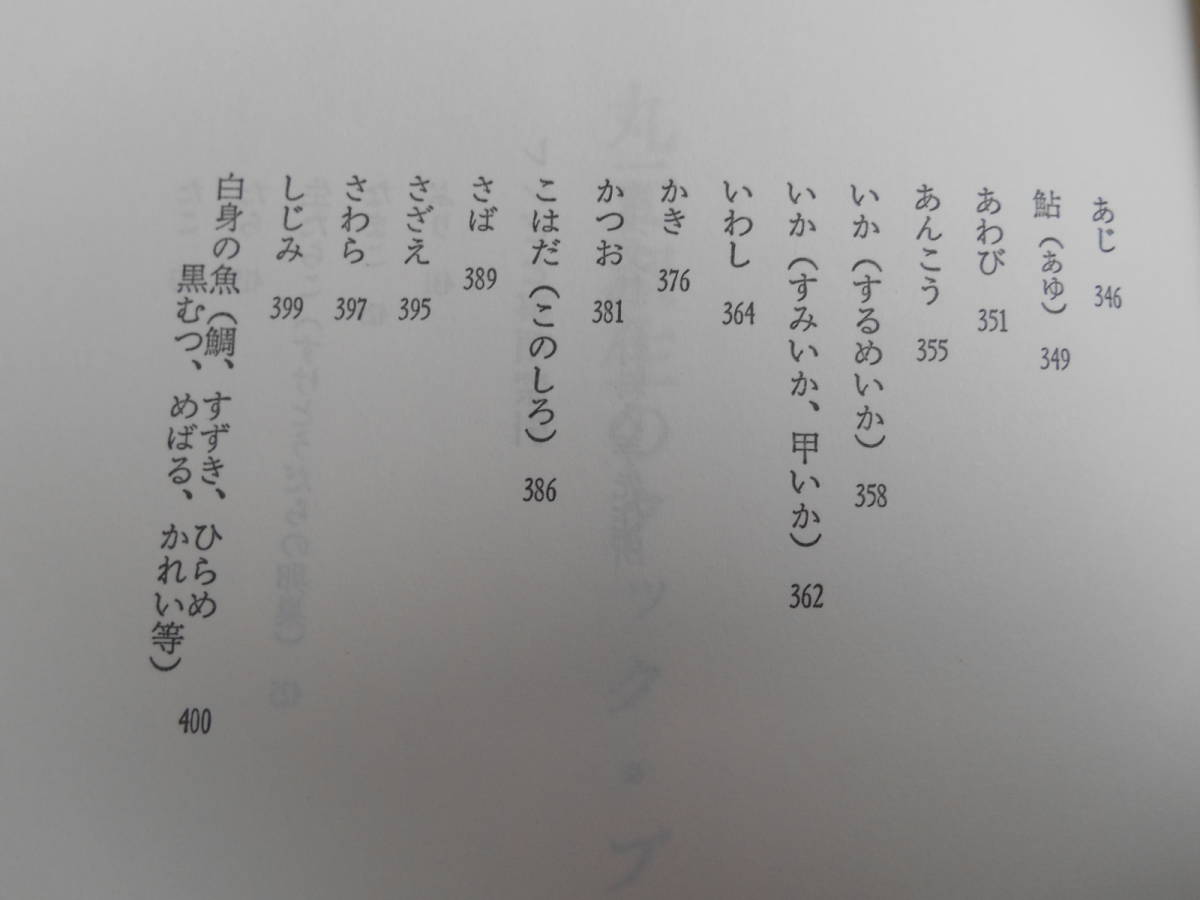 あじ 346
鮎（あゆ） 349
あわび 351
あんこう 355
いか（するめいか） 358
いか（すみいか、甲いか） 362
いわし 364
かき 376
かつお 381
こはだ（このしろ） 386
さば 389
さざえ 395
さわら 397
しじみ 399
白身の魚（鯛、すずき、ひらめ
黒むつ、めばる、かれい等） 400